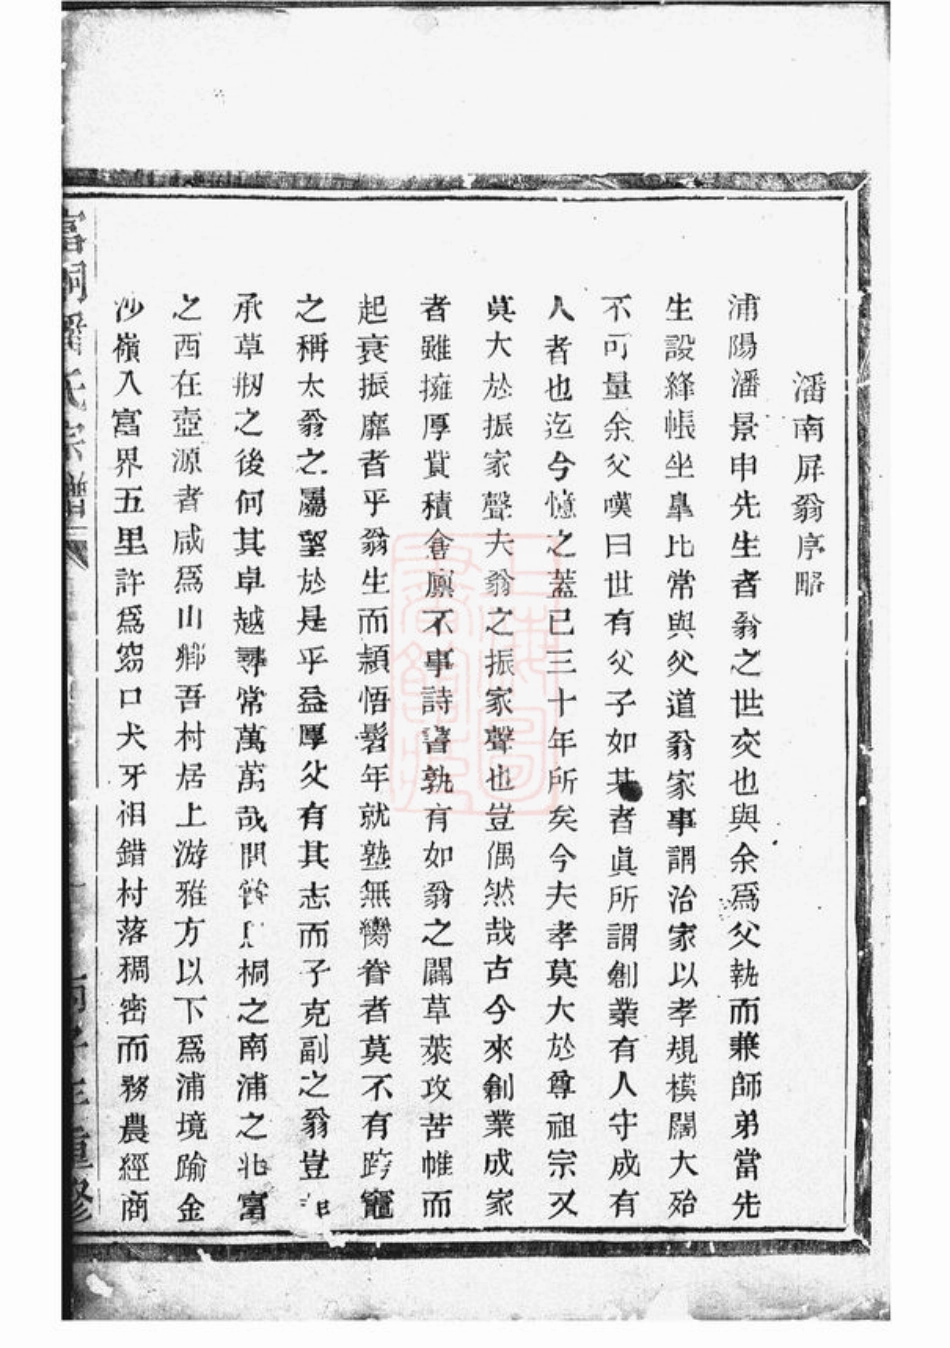 潘南屏翁序略
浦陽潘景申先生者翁之世交也與余爲父執而兼師弟當先
生設絳帳坐臯比常與父道翁家事謂治家以孝規模闊大殆
不可量余父嘆曰世有父子如某者眞所謂創業有人守成有
人者也迄今憶之蓋已三十年所矣今夫孝莫大於尊祖宗又
莫大於振家聲夫翁之振家聲也豈偶然哉古今來創業成家
者雖擁厚貲積倉廩不事詩書孰有如翁之闢草萊攻苦帷而
起衰振靡者乎翁生而穎悟髫年就塾無嚮眷者莫不有跨竈
之稱太翁之屬望於是乎益厚父有其志而子克副之翁豈
承草剏之後何其卓越尋常萬萬哉間嘗桐之南浦之北富
之西在壺源者咸爲山鄉吾村居上游雅方以下爲浦境踰金
沙嶺入富界五里許爲窈口犬牙相錯村落稠密而務農經商
富桐潘氏宗譜
重修